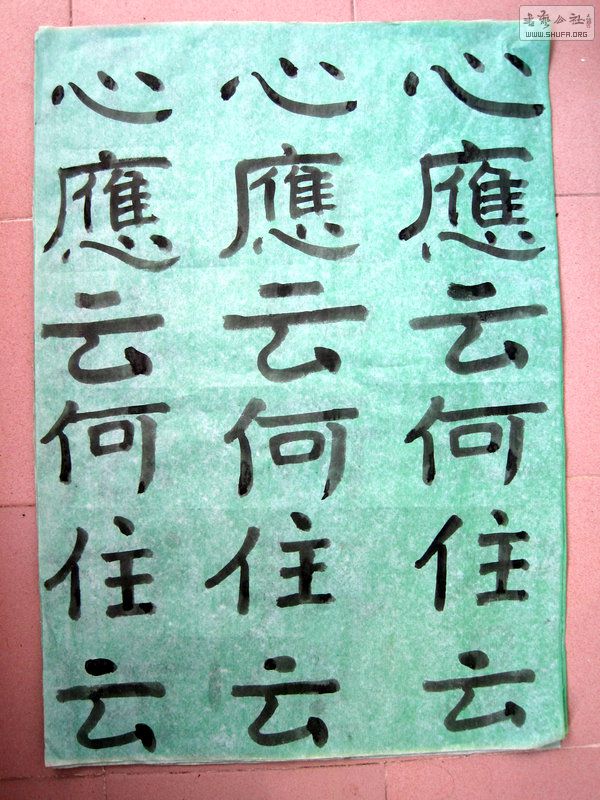 心應云何住云
心應云何住云
心應云何住云
书艺公社
WWW.SHUFA.ORG